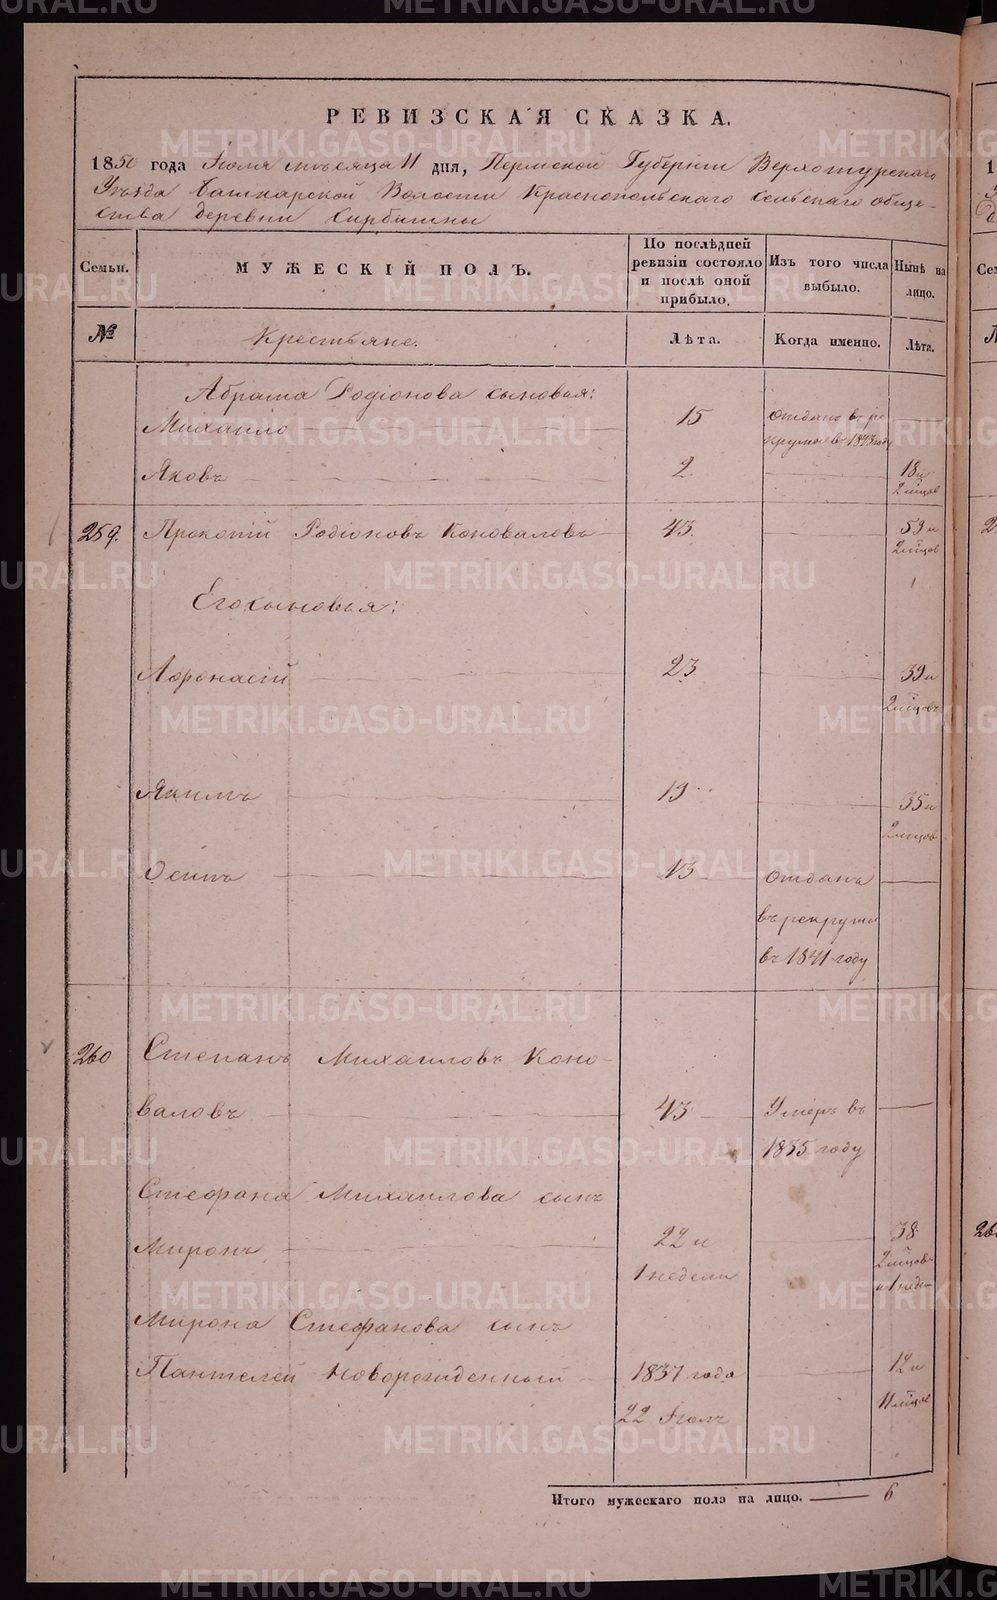 РЕВИЗСКАЯ СКАЗКА.
1850 года Іюля мѣсяца 11 дня, Пермской Губерніи Верхотурскаго
Уѣзда Башкарской Волости Краснопольскаго Сельскаго обще-
ства деревни
Семьи.
МУЖЕСКІЙ ПОЛЪ.
По послѣдней ревизіи состояло и послѣ оной прибыло.
Изъ того числа выбыло.
Нынѣ на лицо.
№
Крестьяне.
Лѣта.
Когда именно.
Лѣта.
Абрама Родіонова сыновья:
Михайло 15 отданъ въ ре
круты въ 1843 году
Яковъ 2. 18 и
2 мѣсцов
259. Прокопій Родіоновъ Коноваловъ 43. 59 и
2 мѣсцов
Его сыновья:
Афонасій 23 39 и
2 мѣсцовъ
Якимъ 19 35 и
2 мѣсцов
Осипъ 13 отданъ
въ рекруты
въ 1841 году
260 Степанъ Михаиловъ Коно-
валовъ 43 Умеръ въ
1835 году
Стефана Михаилова сынъ
Миронъ 22 и 38
1 недели 2 мѣсцов
и 1 неде
Мирона Стефанова сынъ
Пантелей новорожденный 1837 года 12 и
22 Іюля 11 мѣсцов
Итого мужескаго пола на лицо. 6
METRIKI.GASO-URAL.RU